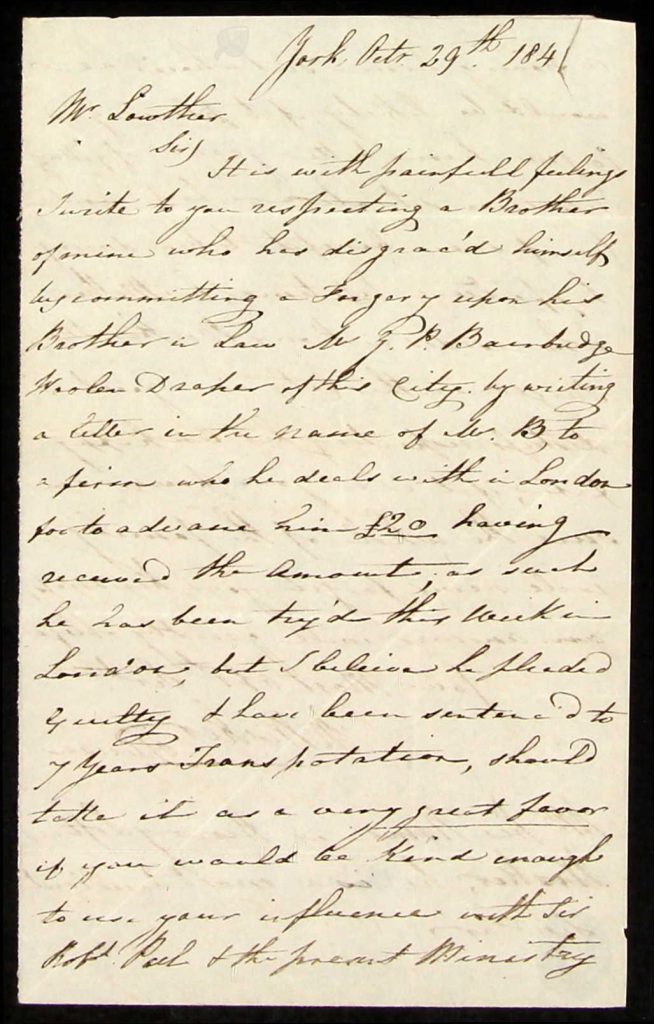 York Octr 29th 184
Mr Lowther
Sir
It is with painfull feelings
I write to you respecting a Brother
of mine who has disgrac'd himself
by committing a Forgery upon his
Brother in Law Mr G. P. Bainbridge
Woolen Draper of this City. by writing
a letter in the name of Mr. B, to
a firm who he deals with in London
for to advance him £20 having
received the Amount, as such
he has been try'd this Week in
London, but I believe he pleaded
guilty & have been sentenc'd to
7 Years Transpotation, should
take it as a very great favor
if you would be Kind enough
to use your influence with Sir
Robt. Peel & the present Ministry